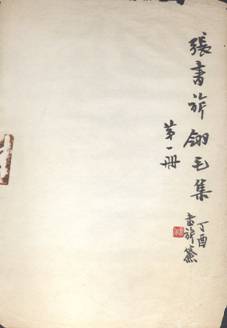 張書旂翎毛集
第一冊
丁酉
書旂簽